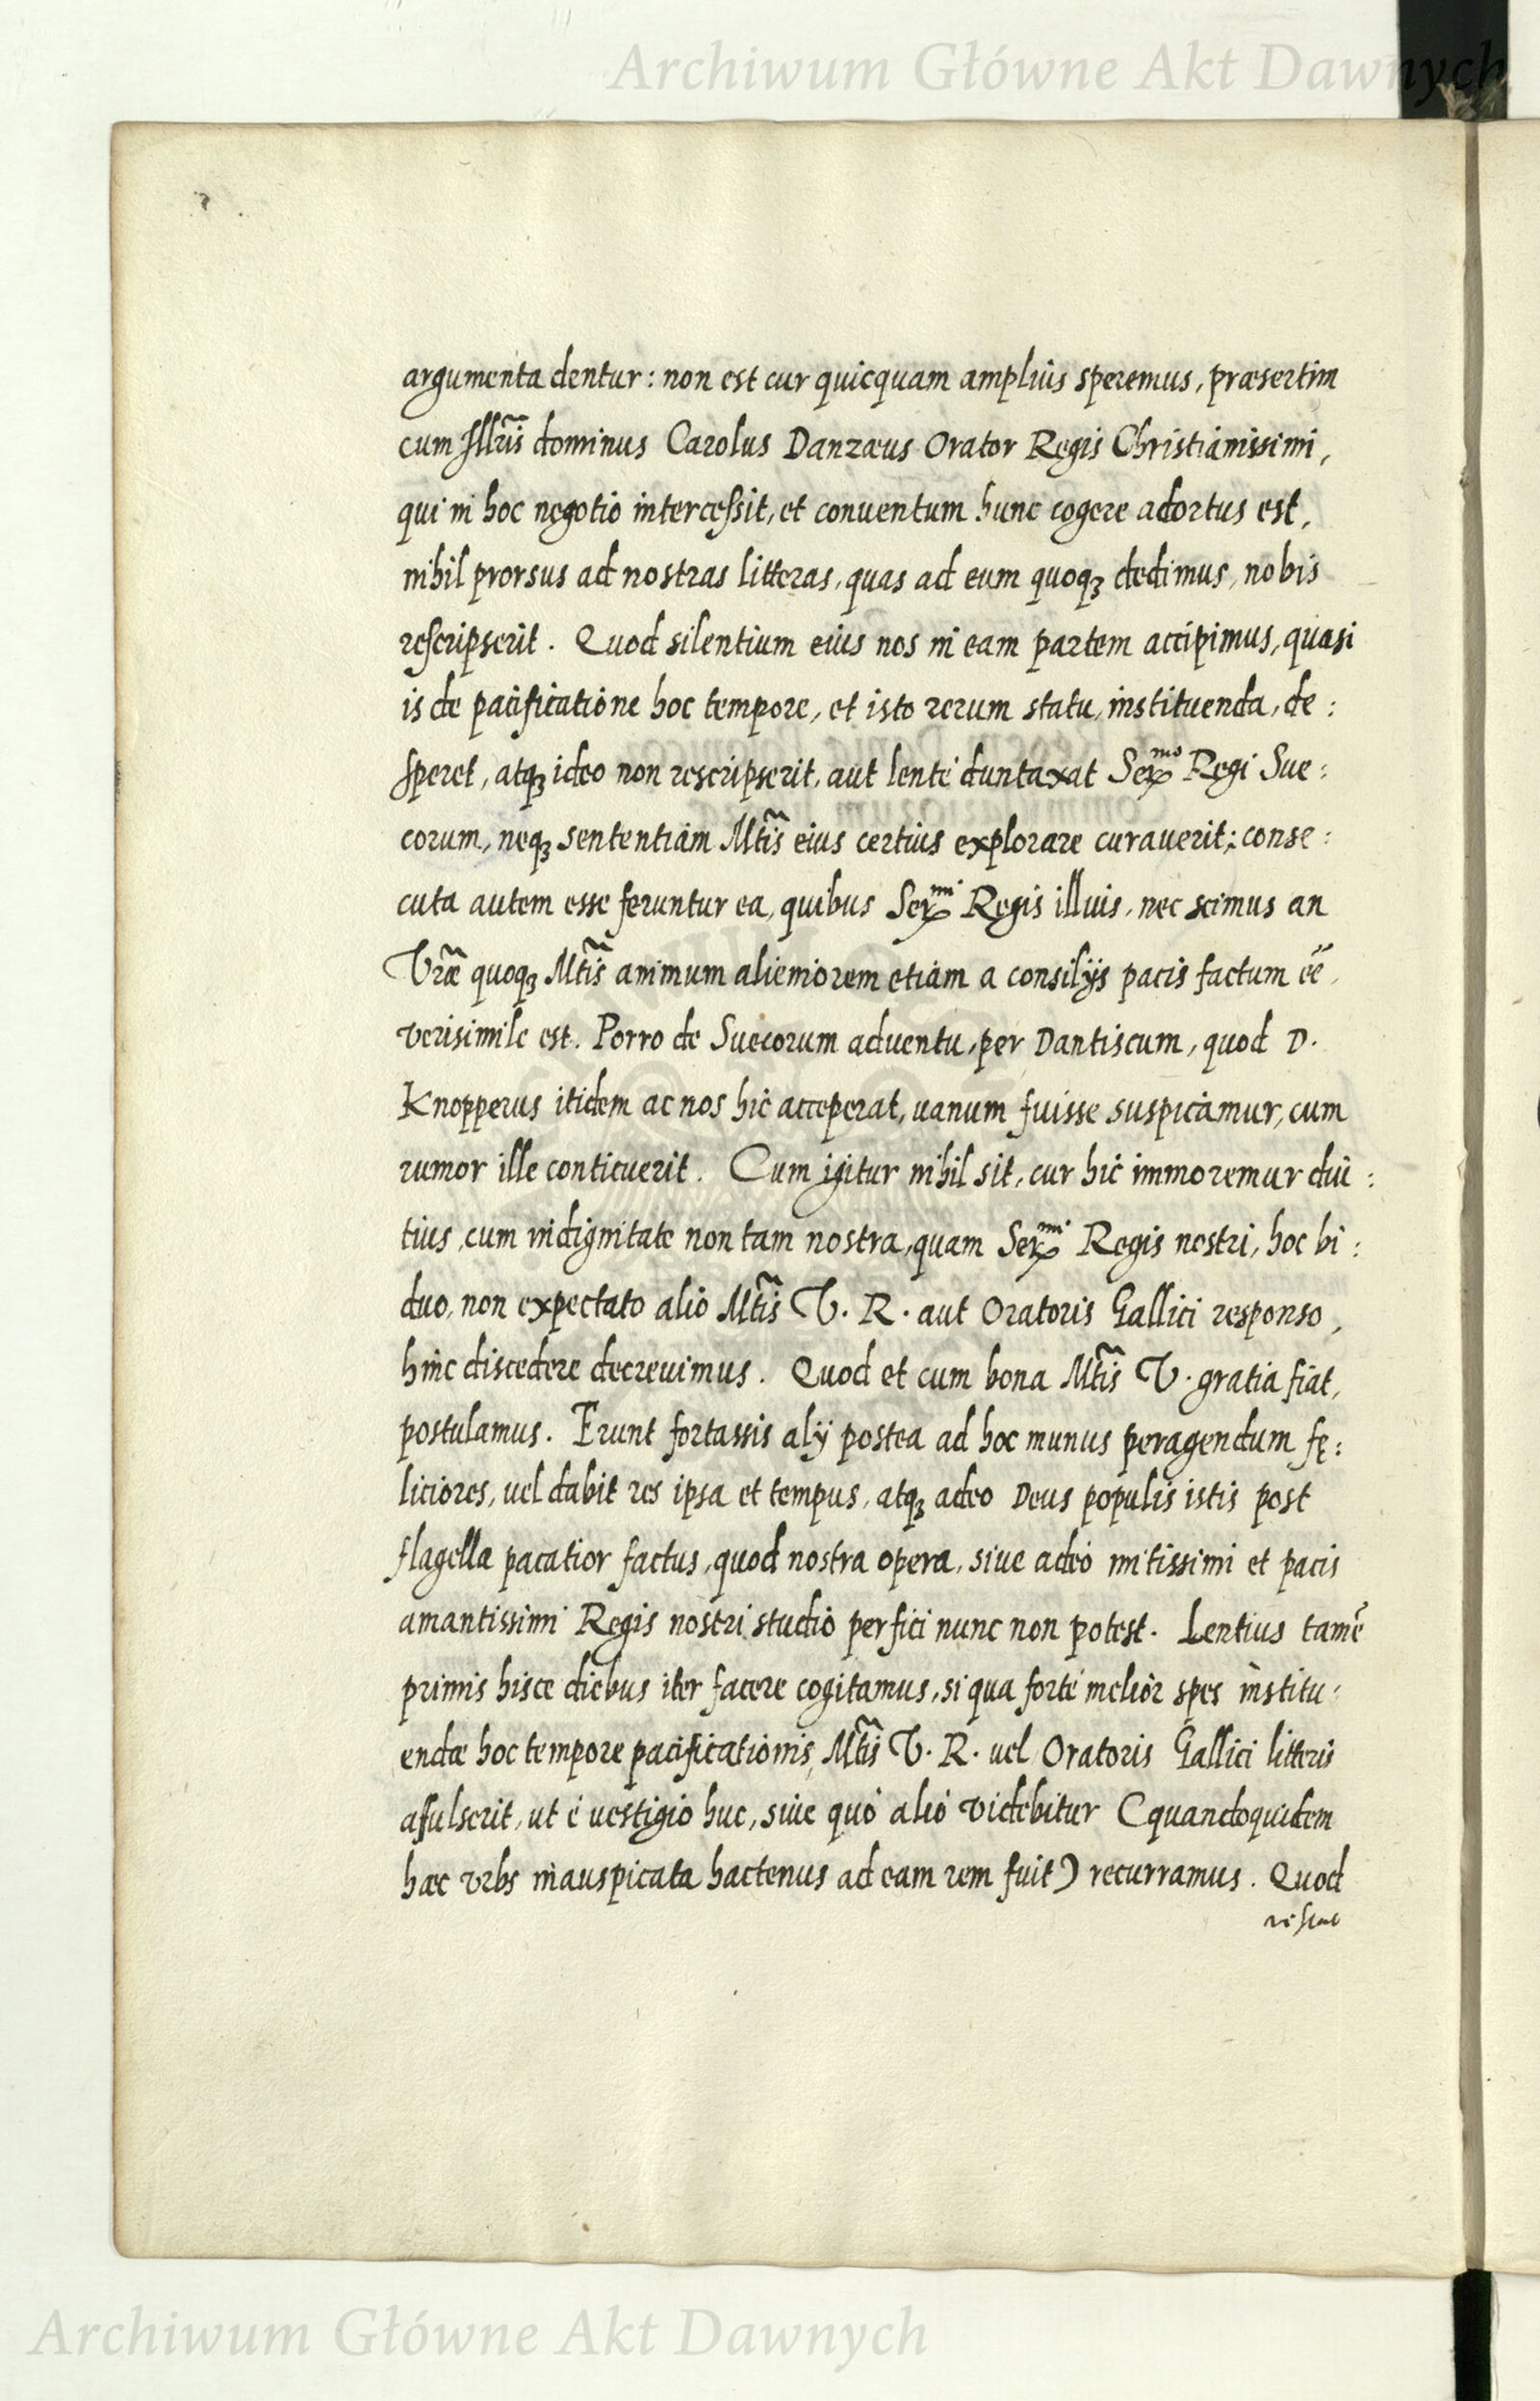 Archiwum Główne Akt Dawnych
argumenta dentur: non est cur quicquam amplius speremus, præsertim
cum Illr̃is dominus Carolus Danzæus Orator Regis Christianissimi,
qui in hoc negotio interceſsit, et conuentum hunc cogere adortus est,
nihil prorsus ad nostras litteras, quas ad eum quoqꝫ dedimus, nobis
reſcripserit. Quod silentium eius nos in eam partem accipimus, quasi
is de pacificatione hoc tempore, et isto rerum statu, instituenda, de:
ſperet, atqꝫ ideo non rescripserit, aut lentè duntaxat Serᵐᵒ Regi Sue:
corum, neqꝫ sententiam Mt̃is eius certius explorare curauerit; conse:
cuta autem esse feruntur ea, quibus Serᵐⁱ Regis illius, nec scimus an
Vr̃æ quoqꝫ Mt̃is animum alieniorem etiam a consilijs pacis factum eẽ,
verisimile est. Porro de Suecorum aduentu, per Dantiscum, quod D.
Knopperus itidem ac nos hic acceperat, uanum fuisse suspicamur, cum
rumor ille conticuerit. Cum igitur nihil sit, cur hic immoremur diu:
tius, cum indignitate non tam nostra, quam Serᵐⁱ Regis nostri, hoc bi:
duo, non expectato alio Mt̃is V. R. aut Oratoris Gallici responso,
hinc discedere decreuimus. Quod et cum bona Mt̃is V. gratia fiat,
postulamus. Erunt fortassis alij postea ad hoc munus peragendum fę:
liciores, uel dabit res ipsa et tempus, atqꝫ adeo Deus populis istis post
flagella pacatior factus, quod nostra opera, siue adeò mitissimi et pacis
amantissimi Regis nostri studio perfici nunc non potest. Lentius tamẽ
primis hisce diebus iter facere cogitamus, si qua fortè melior spes institu:
endæ hoc tempore pacificationis, Mt̃is V. R. uel Oratoris Gallici litteris
affulserit, ut è uestigio huc, siue quò aliò videbitur (quandoquidem
hæc vrbs inauspicata hactenus ad eam rem fuit) recurramus. Quod
Archiwum Główne Akt Dawnych